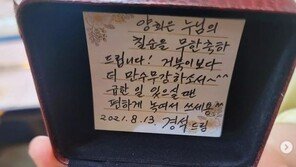 양희은 누님의
칠순을 무한축하
드립니다! 거북이보다
더 만수무강하소서~^^
급한 일 있으실 땐
편하게 녹여서 쓰세요
2021. 8. 13 경석 드림